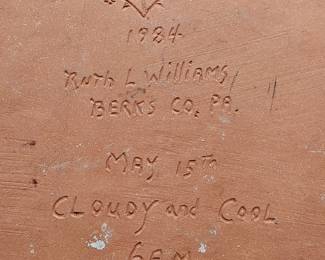 1984
Ruth L Williams
BERKS CO. PA.
MAY 15TH
CLOUDY and COOL